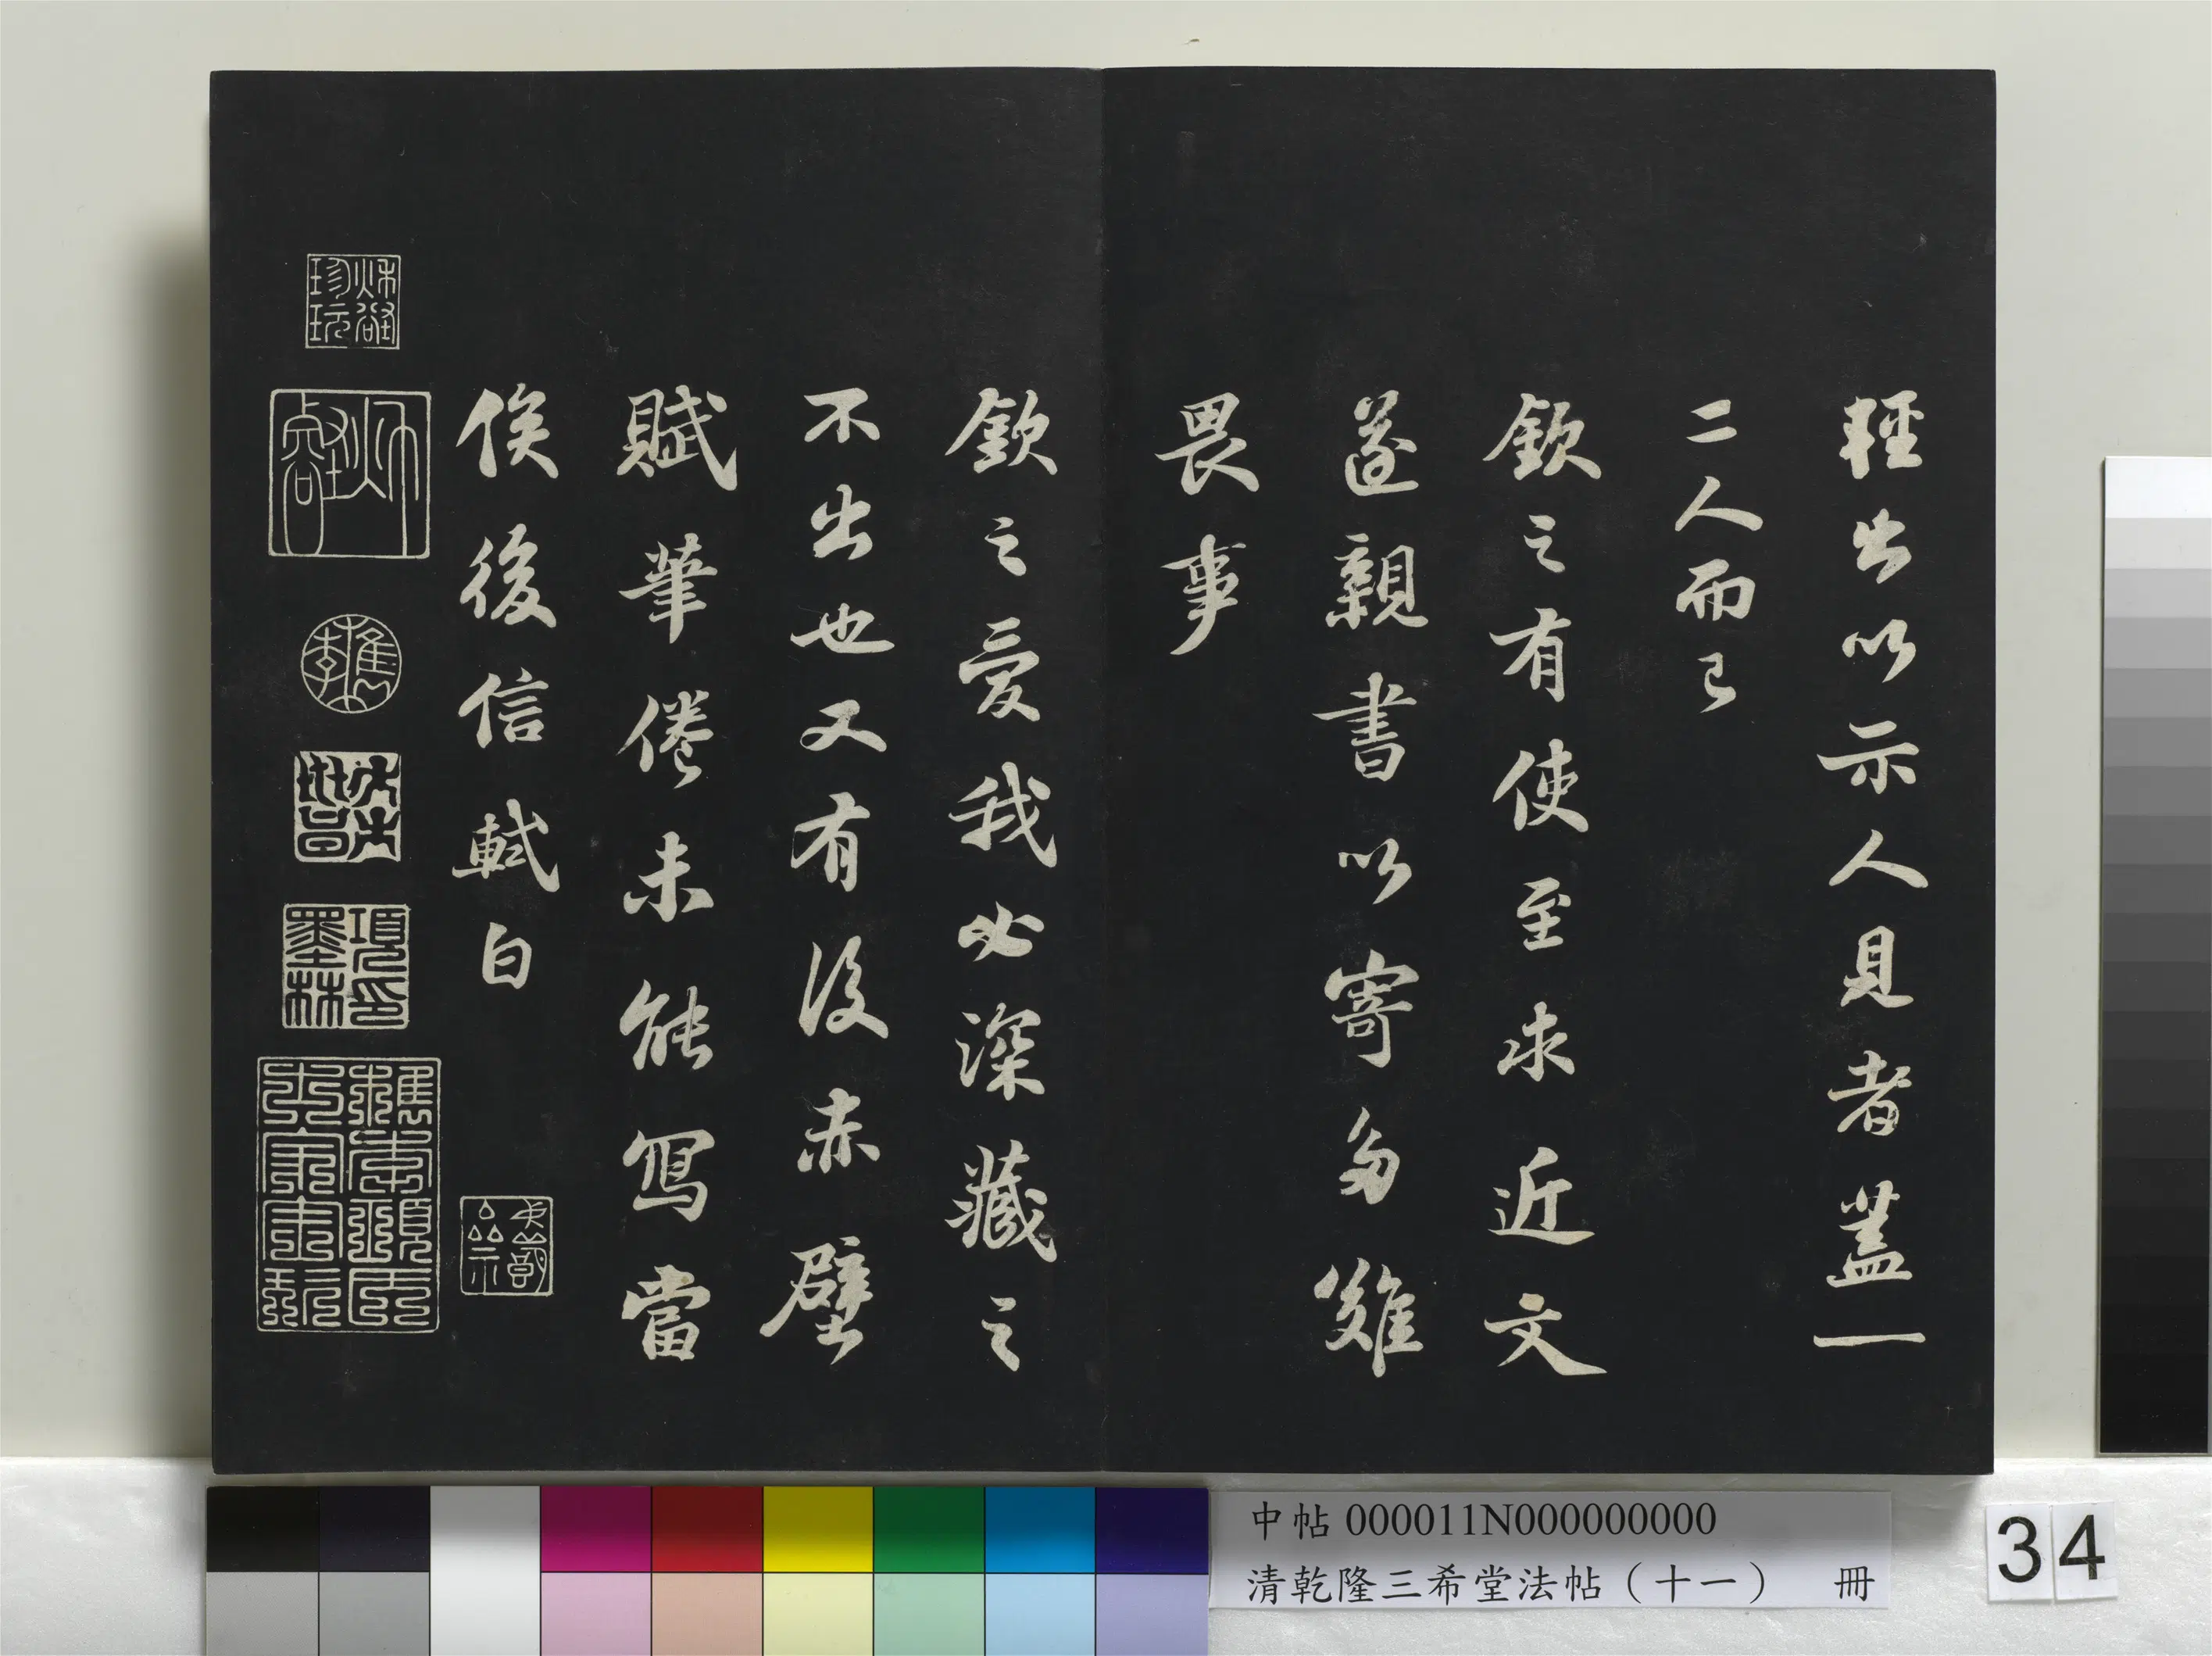 輕出以示人見者蓋一
二人而已
欽之有使至求近文
遂親書以寄多難
畏事
欽之愛我必深藏之
不出也又有後赤壁
賦筆倦未能寫當
俟後信軾白
項墨林印
中帖 000011N000000000
清乾隆三希堂法帖（十一） 冊
34